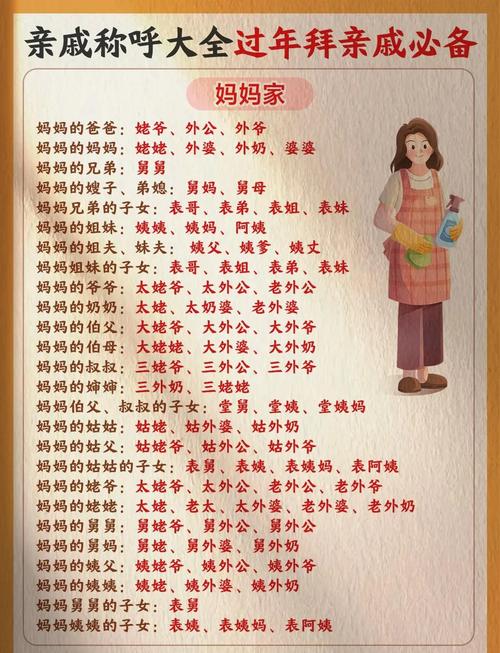 亲戚称呼大全过年拜亲戚必备
妈妈家
妈妈的爸爸：姥爷、外公、外爷
妈妈的妈妈：姥姥、外婆、外奶、婆婆
妈妈的兄弟：舅舅
妈妈的嫂子、弟媳：舅妈、舅母
妈妈兄弟的子女：表哥、表弟、表姐、表妹
妈妈的姐妹：姨姨、姨妈、阿姨
妈妈的姐夫、妹夫：姨父、姨爹、姨丈
妈妈姐妹的子女：表哥、表姐、表弟、表妹
妈妈的爷爷：太姥爷、太外公、老外公
妈妈的奶奶：太姥、太奶婆、老外婆
妈妈的伯父：大姥爷、大外公、大外爷
妈妈的伯母：大姥姥、大外婆、大外奶
妈妈的叔叔：三姥爷、三外公、三外爷
妈妈的婶婶：三外奶、三姥姥
妈妈伯父、叔叔的子女：堂舅、堂姨、堂姨妈
妈妈的姑姑：姑姥、姑外婆、姑外奶
妈妈的姑父：姑姥爷、姑外公、姑外爷
妈妈的姑姑的子女：表舅、表姨、表姨妈、表阿姨
妈妈的姥爷：太姥爷、太外公、老外公、老外爷
妈妈的姥姥：太姥、老太、太外婆、老外婆、老外奶
妈妈的舅舅：舅姥爷、舅外公、舅外公
妈妈的舅妈：舅姥、舅外婆、舅外奶
妈妈的姨父：姨姥爷、姨外公、姨外爷
妈妈的姨姨：姨姥、姨外婆、姨外奶
妈妈舅舅的子女：表舅
妈妈姨姨的子女：表姨、表姨妈、表阿姨